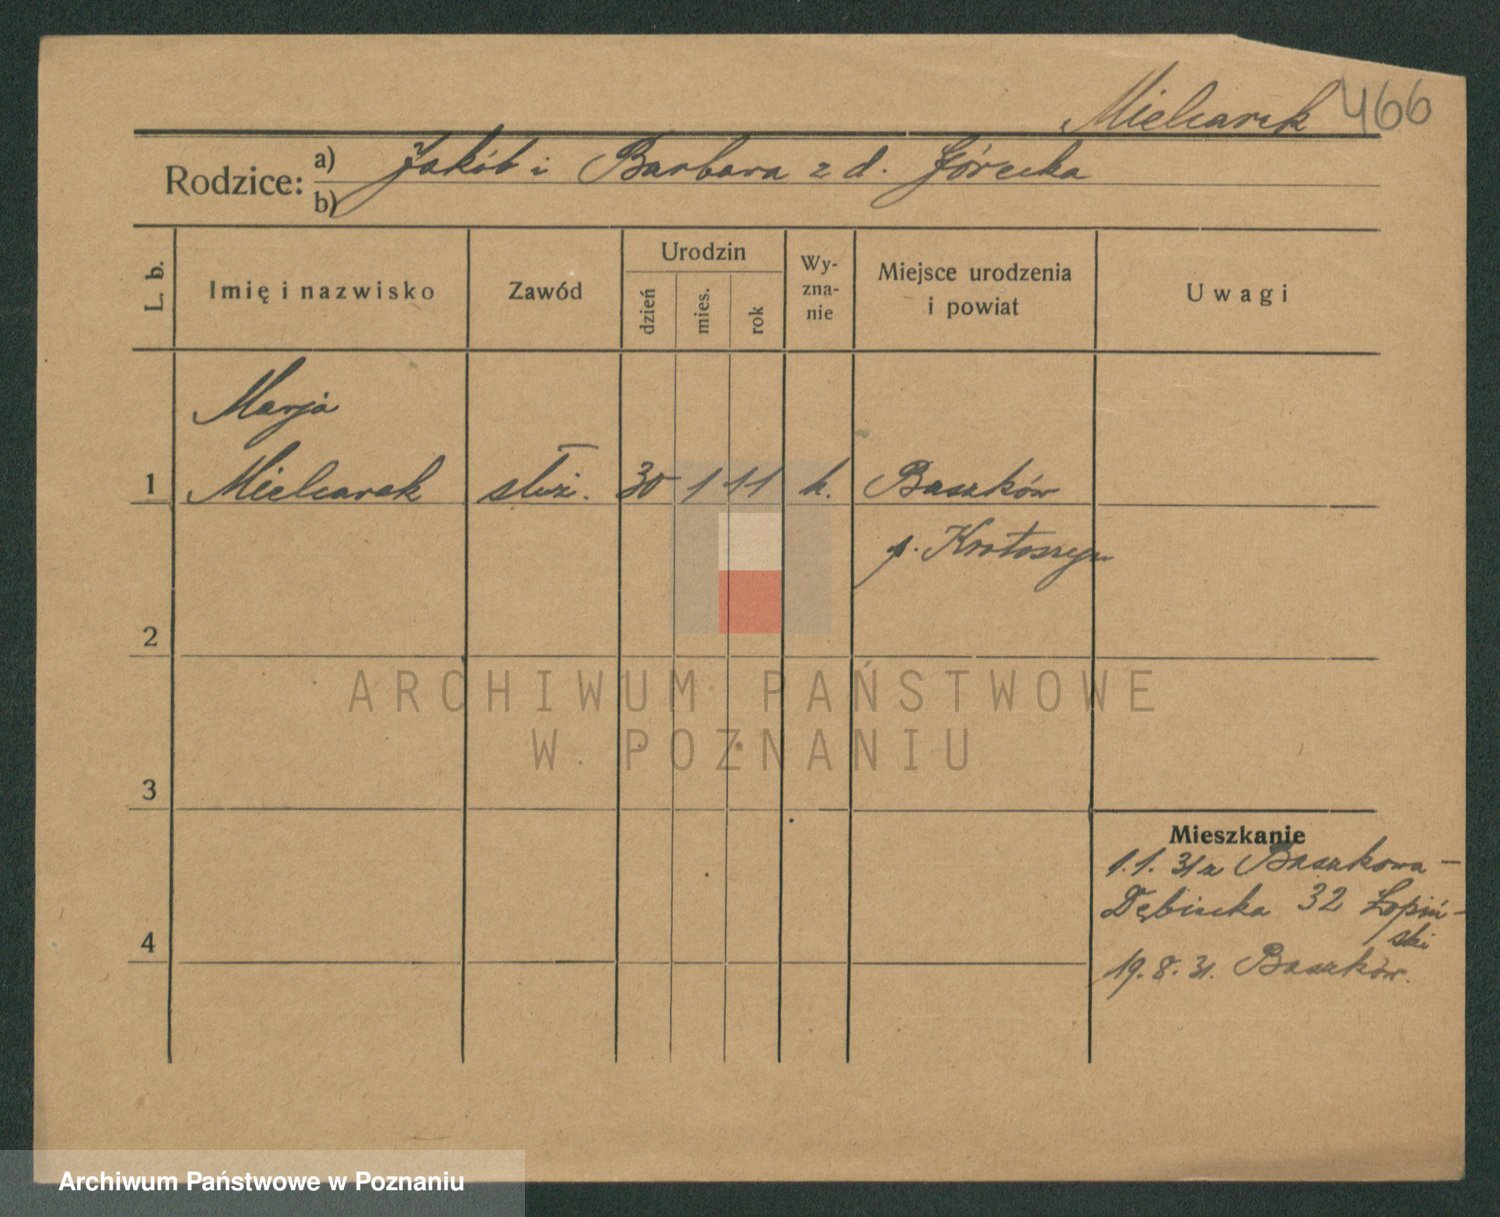 Mielcarek 466
Rodzice: a) Jakób i Barbara z d. Górecka
b)
L. b.
Imię i nazwisko
Zawód
Urodzin
dzień
mies.
rok
Wy-
zna-
nie
Miejsce urodzenia
i powiat
Uwagi
Marja
1 Mielcarek służ. 30 1 11 k. Baszków
p. Krotoszyn
2
3
4
Mieszkanie
1.1.31 z Baszkowa -
Dębiecka 32 Łopiń-
ski
19.8.31. Baszków.
ARCHIWUM PAŃSTWOWE
W POZNANIU
Archiwum Państwowe w Poznaniu